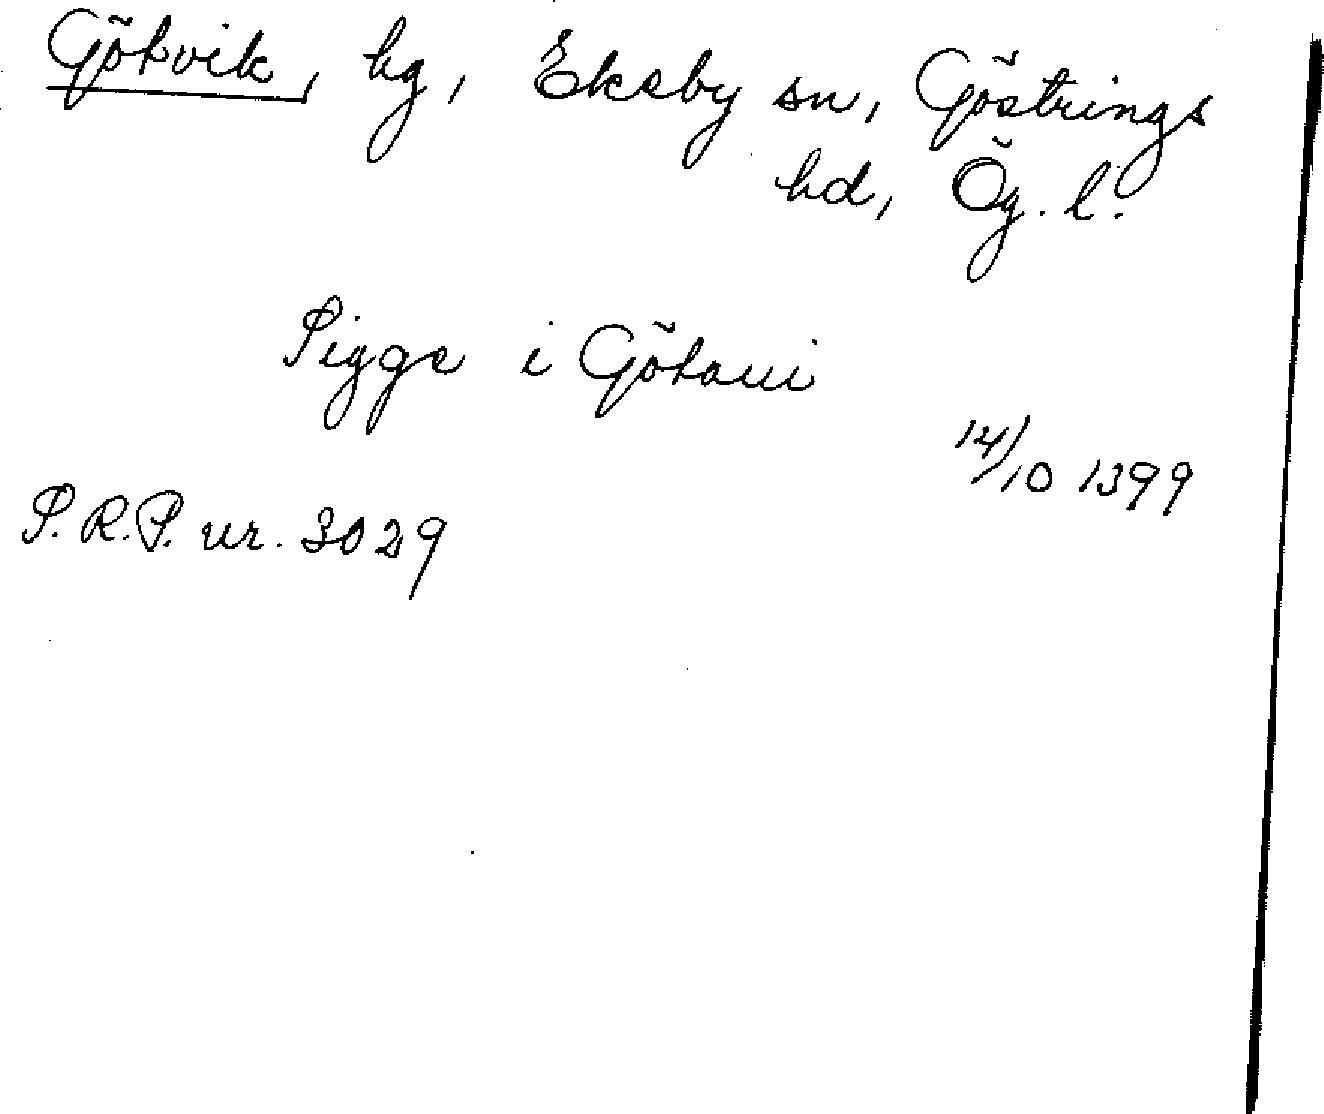 Gökvik, hg, Eksby sn, Göstrings
hd, Ög. l.
Sigge i Götaui
14/10 1399
S.R.P. nr. 3029